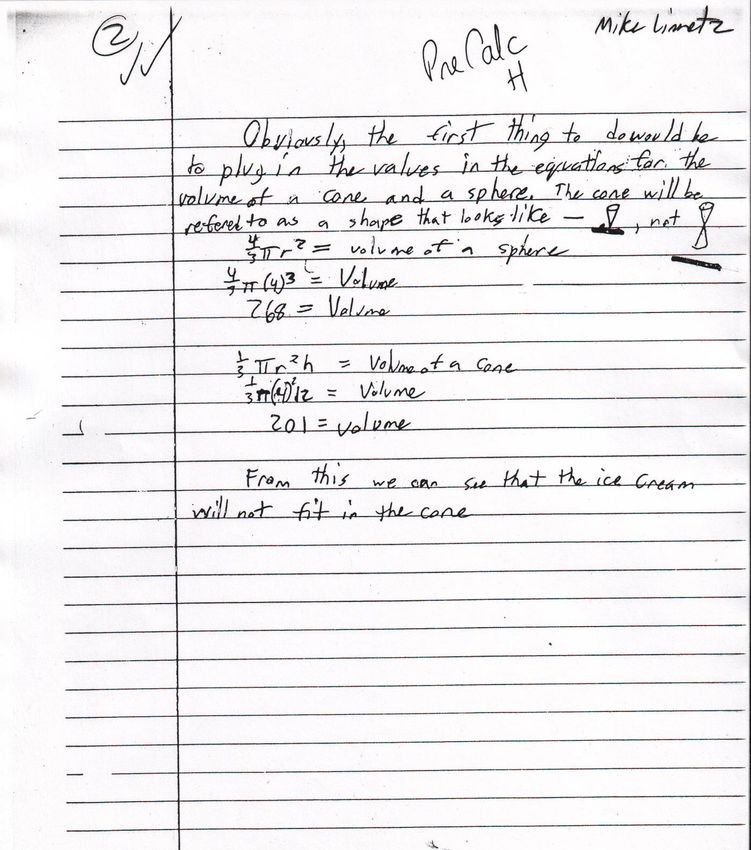 2
Mike Limetz
Pre Calc
H
Obviously, the first thing to do would be
to plug in the values in the equations for the
volume of a cone and a sphere. The cone will be
refered to as a shape that looks like — , not
4/3 π r² = volume of a sphere
4/3 π (4)³ = Volume
268 = Volume
1/3 π r² h = Volume of a cone
1/3 π (4)² 12 = Volume
201 = volume
From this we can see that the ice cream
will not fit in the cone